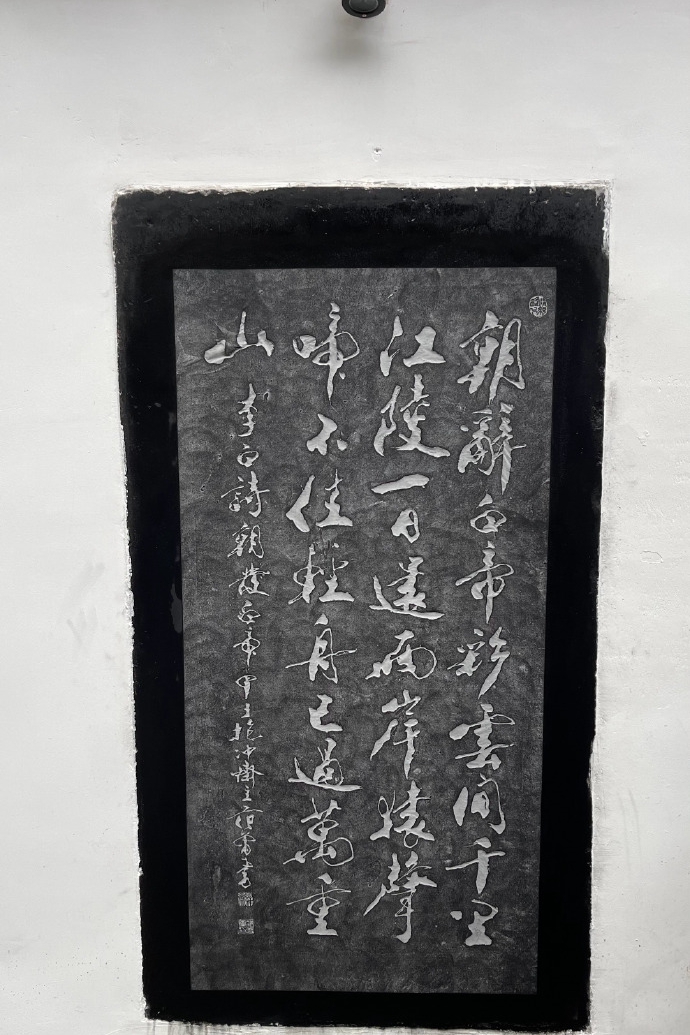 朝辭白帝彩雲間千里
江陵一日還兩岸猿聲
啼不住輕舟已過萬重
山
李白詩朝發白帝甲午抱沖齋主范曾書